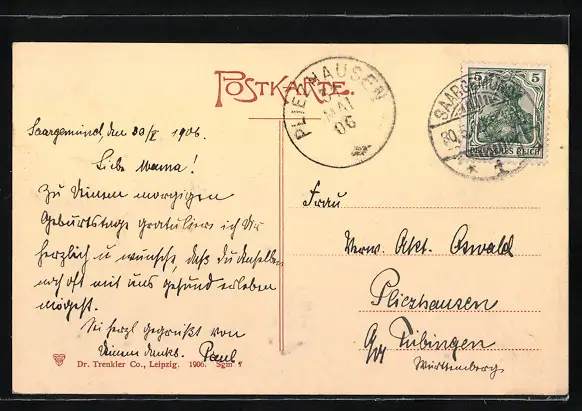 POSTKARTE.
PLIEZHAUSEN
MAI
06
SAARGEMÜND
5
5
DEUTSCHES REICH
Saargemünd, den 30/V 1906.
Liebe Mama!
Zu Deinem morgigen
Geburtstage gratuliere ich Dir
herzlich u wünsche, daß du denselben
noch oft mit uns gesund erleben
mögest.
Sei herzl gegrüßt von
Deinem dankb. Paul
Frau
Verw. Akt. Oswald
Pliezhausen
Tübingen
Württemberg
Dr. Trenkler Co., Leipzig. 1906. Sgm